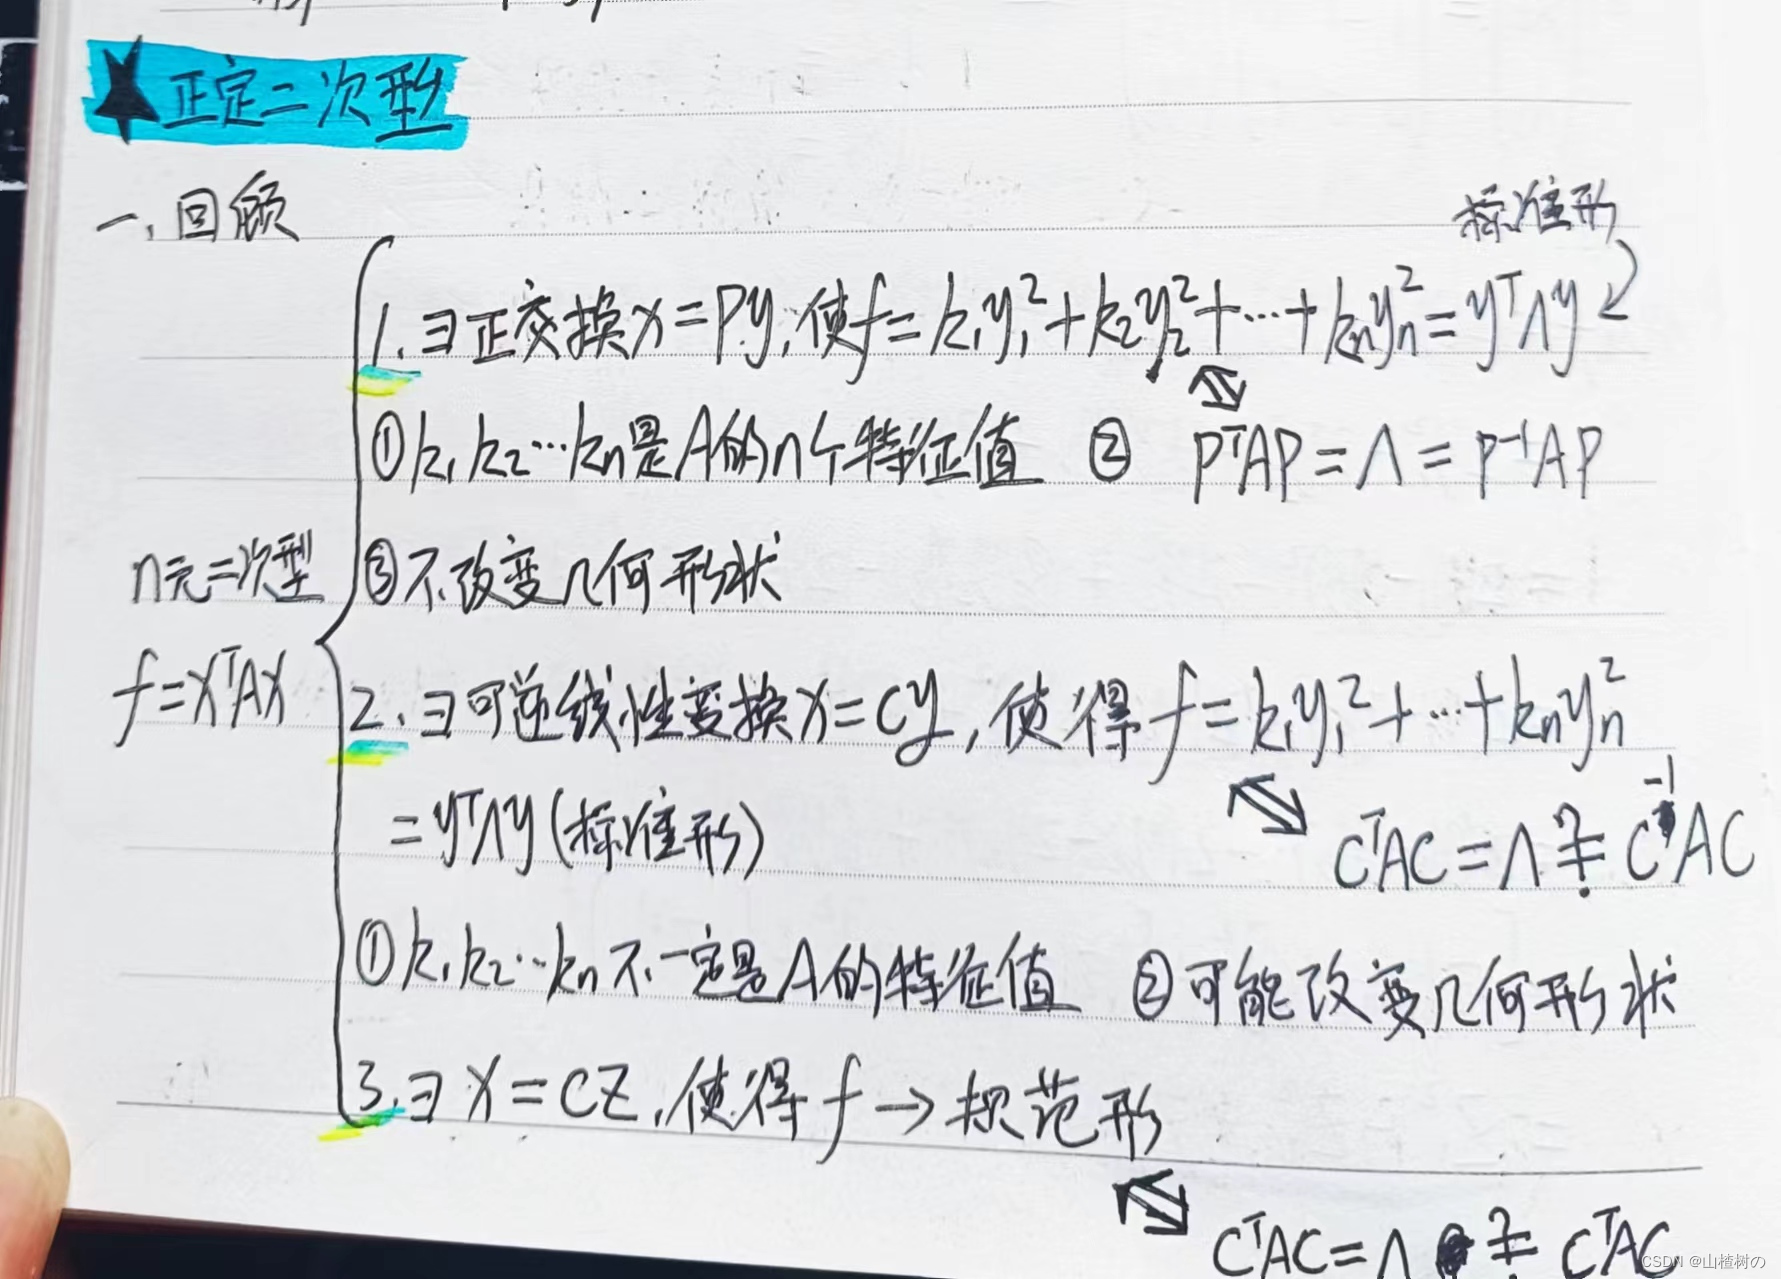 ★正定二次形
一、回顾
标准形
1. ∃正交换x=Py,使f=k₁y₁²+k₂y₂²+…+kₙyₙ²=yᵀΛy
①k₁k₂…kₙ是A的n个特征值 ② PᵀAP=Λ=P⁻¹AP
n元二次型 ③不改变几何形状
f=xᵀAx 2. ∃可逆线性变换x=Cy,使得f=k₁y₁²+…+kₙyₙ²
=yᵀΛy(标准形) CᵀAC=Λ≟C⁻¹AC
①k₁k₂…kₙ不一定是A的特征值 ②可能改变几何形状
3. ∃ x=CZ,使得f→规范形
CᵀAC=Λ ≟ CᵀAC
CSDN @山楂树の